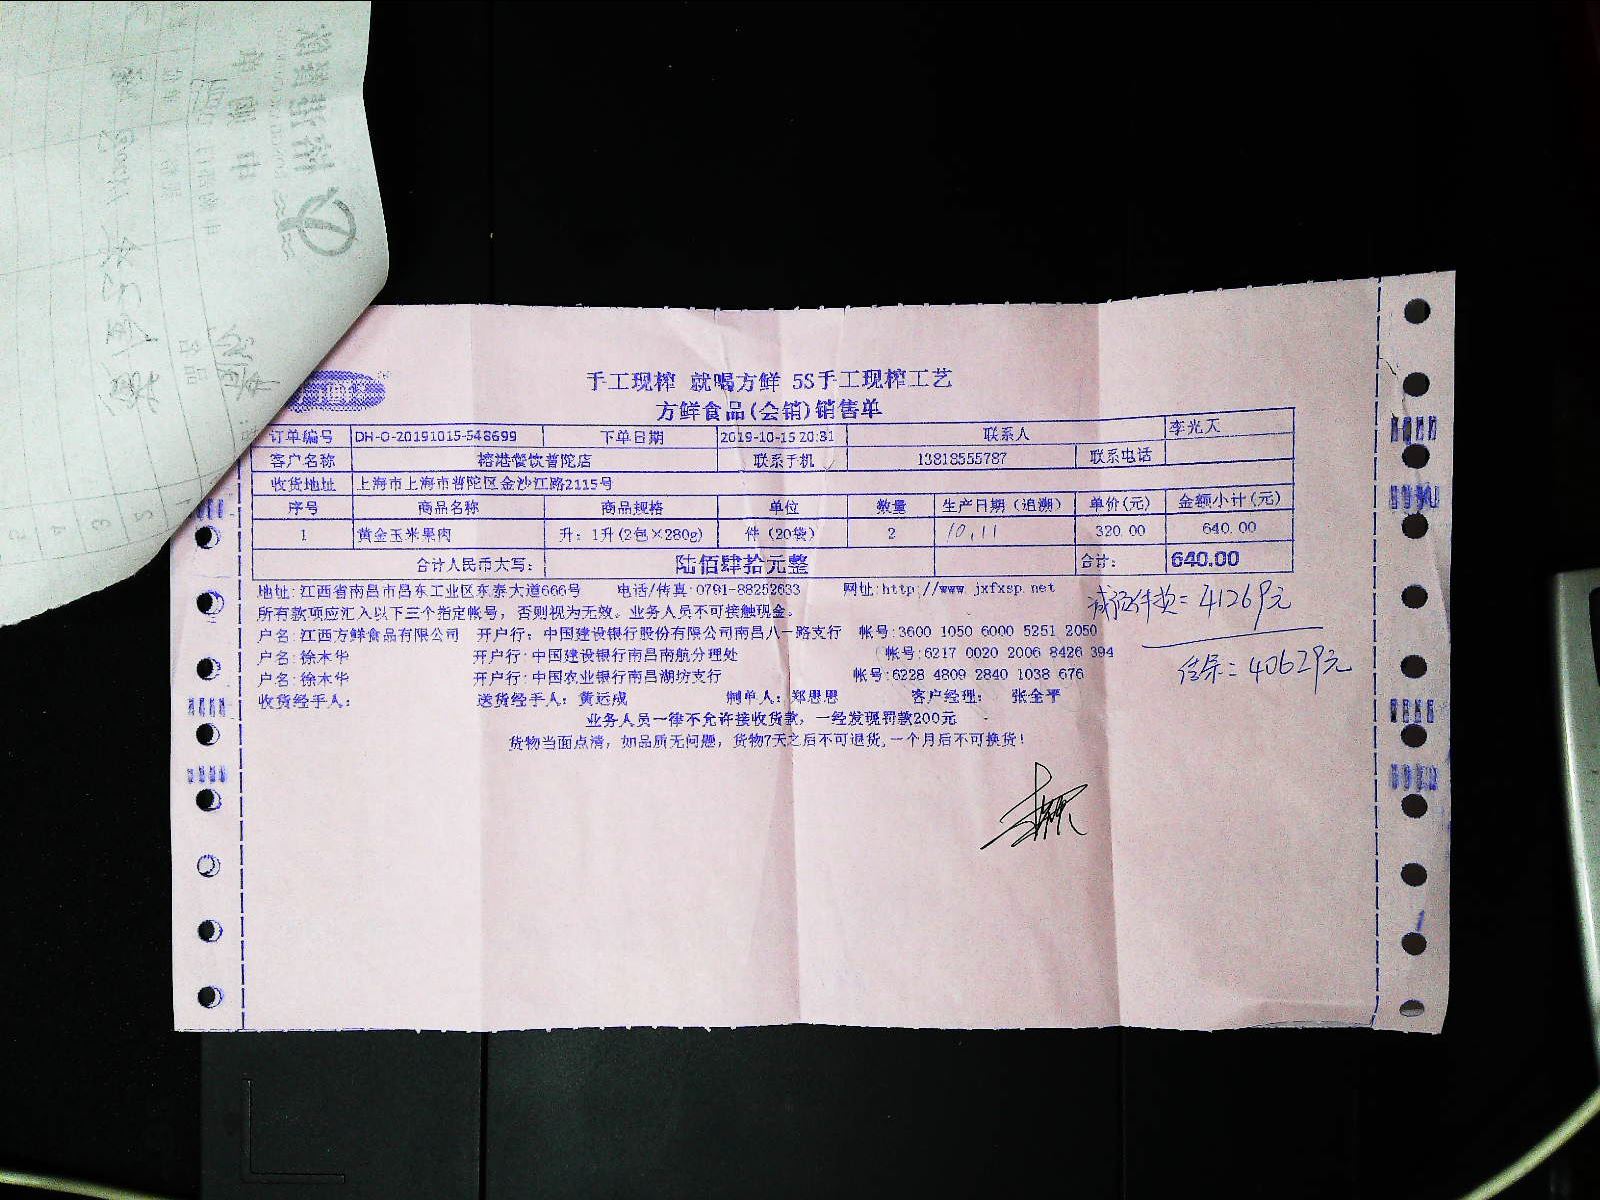 手工现榨 就喝方鲜 5S手工现榨工艺
方鲜食品(会销)销售单
订单编号 DH-O-20191015-548699 下单日期 2019-10-15 20:31 联系人 李光天
客户名称 榕港餐饮普陀店 联系手机 13818555787 联系电话
收货地址 上海市上海市普陀区金沙江路2115号
序号 商品名称 商品规格 单位 数量 生产日期（追溯） 单价(元) 金额小计(元)
1 黄金玉米果肉 升: 1升(2包×280g) 件（20袋） 2 10.11 320.00 640.00
合计人民币大写: 陆佰肆拾元整 合计: 640.00
地址: 江西省南昌市昌东工业区东泰大道666号 电话/传真:0791-88252633 网址:http://www.jxfxsp.net
所有款项应汇入以下三个指定帐号，否则视为无效。业务人员不可接触现金。
户名:江西方鲜食品有限公司 开户行: 中国建设银行股份有限公司南昌八一路支行 帐号:3600 1050 6000 5251 2050
户名:徐木华 开户行:中国建设银行南昌南航分理处 帐号:6217 0020 2006 8426 394
户名:徐木华 开户行:中国农业银行南昌湖坊支行 帐号:6228 4809 2840 1038 676
收货经手人: 送货经手人: 黄远成 制单人: 郑思思 客户经理: 张全平
业务人员一律不允许接收货款，一经发现罚款200元
货物当面点清，如品质无问题，货物7天之后不可退货,一个月后不可换货!
= 41269元
= 40629元